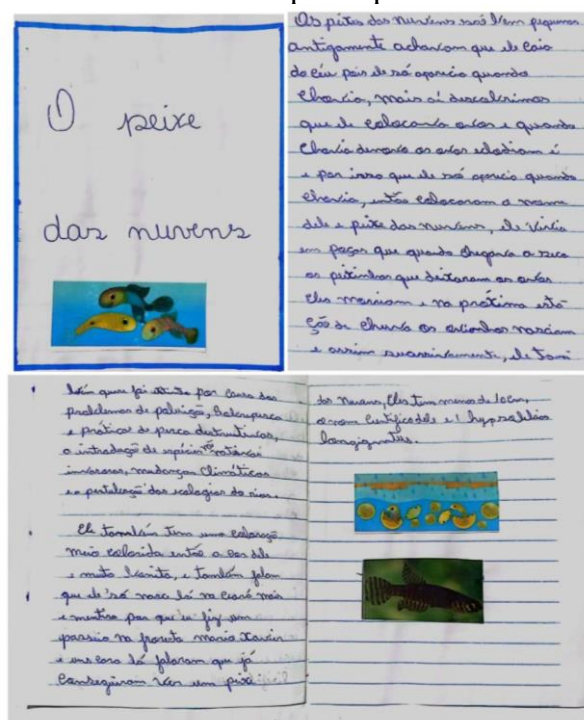 O peixe
das nuvens
Os peites das nuvens são bem pequenos
antigamente achavam que ele caio
do céu pois ele só aparecia quando
chovia, mais ai descobrimos
que ele colocava ovos e quando
chovia
e por isso que ele só aparecia quando
chovia, então colocaram o nome
dele e peite das nuvens, ele
em poços que quando chegava a seca
os peitinhos que deitaram os ovos
eles morriam e na próxima esta
ção de chuva os ovinhos nasciam
e assim ele tam
bém quase foi por causa dos
problemas de poluição,
e práticas de pesca destrutivas,
a introdução de espécies
invasoras, mudanças climáticas
dos rios.
Ele também tem uma coloração
meio colorida então a cor dele
e muito bonita, e também falam
que ele só nasce lá no ceará mais
e mentira por que eu fiz um
passeio na floresta maria
e uns cara lá falaram que já
conseguiram ver um peixe
das nuvens, Eles tem menos de 10cm,
o nom dele e: